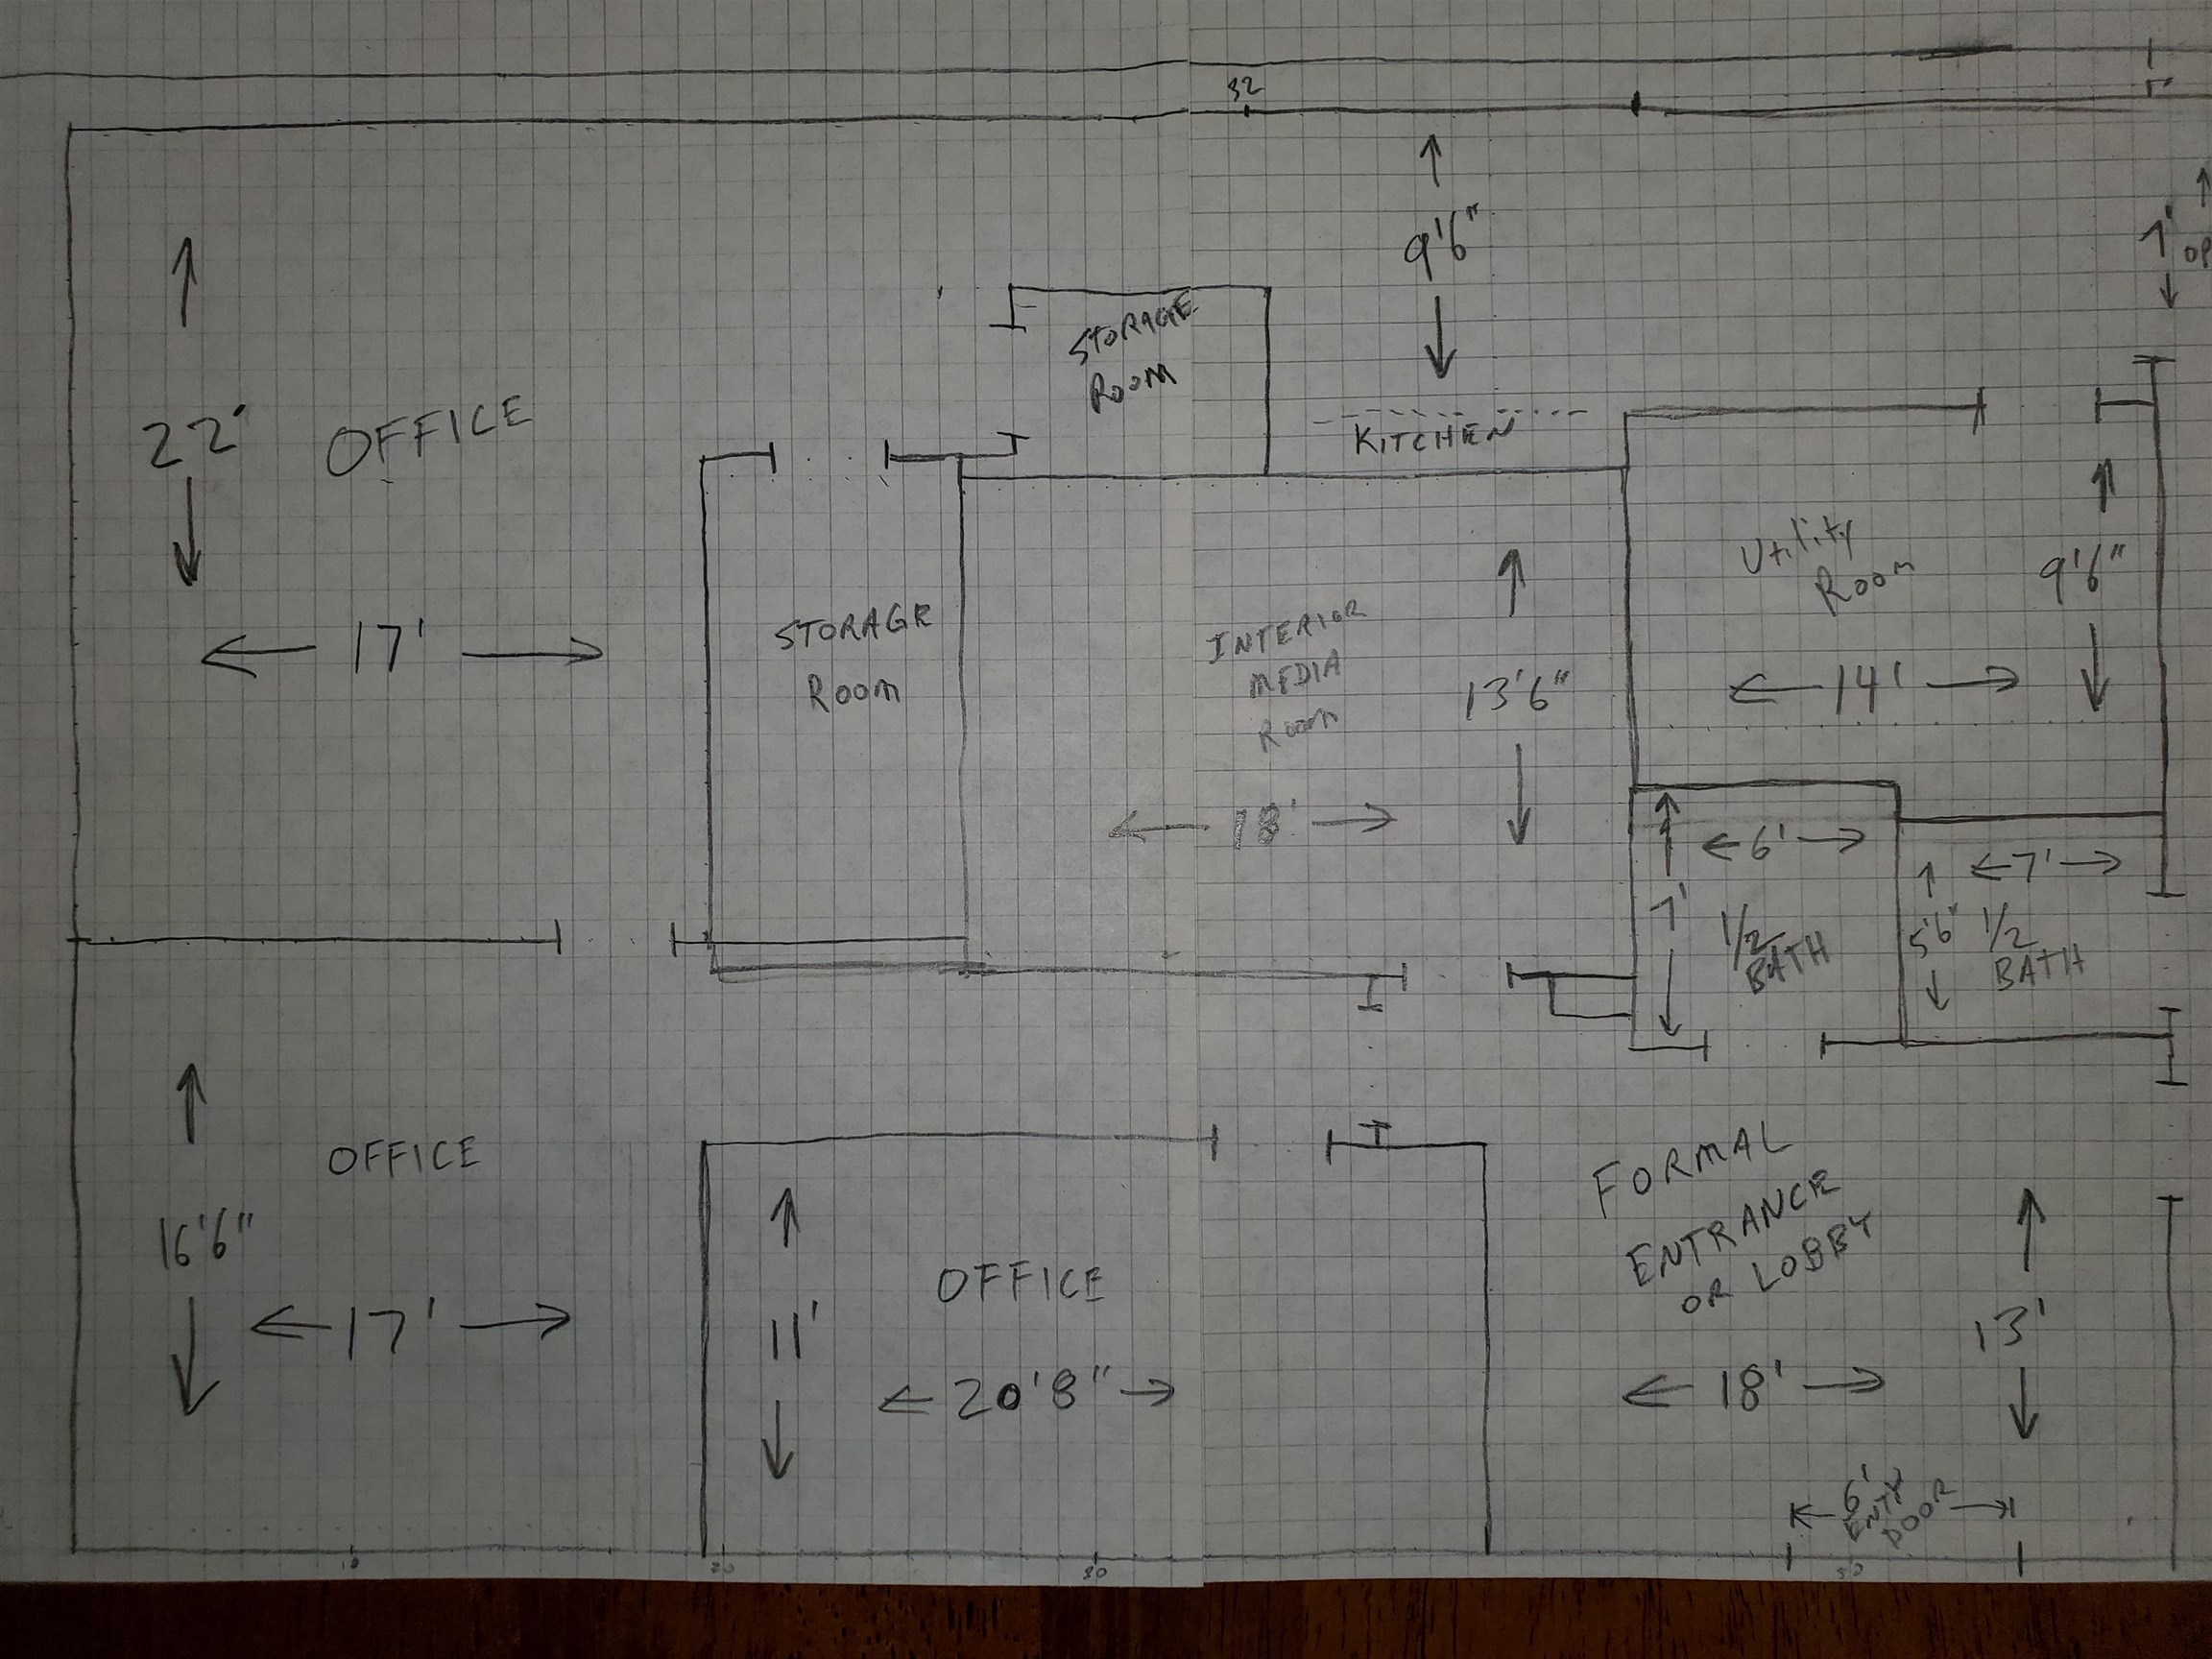 32
9'6"
7'
STORAGE
ROOM
KITCHEN
22'
OFFICE
17'
STORAGE
ROOM
INTERIOR
MEDIA
ROOM
13'6"
18'
Utility
Room
9'6"
14'
6'
7'
7'
1/2
BATH
5'6"
1/2
BATH
OFFICE
16'6"
17'
11'
OFFICE
20'8"
FORMAL
ENTRANCE
OR LOBBY
13'
18'
6'
ENTY
DOOR
10
20
30
50